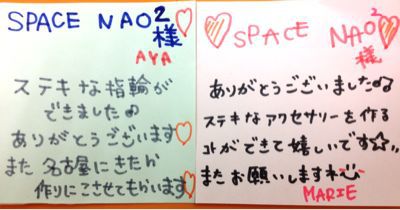 SPACE NAO²様
AYA
ステキな指輪が
できました♪
ありがとうございます♡
また 名古屋にきたら
作りにこさせてもらいます♡
♡SPACE NAO²♡
様
ありがとうございました♪
ステキなアクセサリーを作る
コトができて嬉しいです☆〃
またお願いしますネ
MARIE